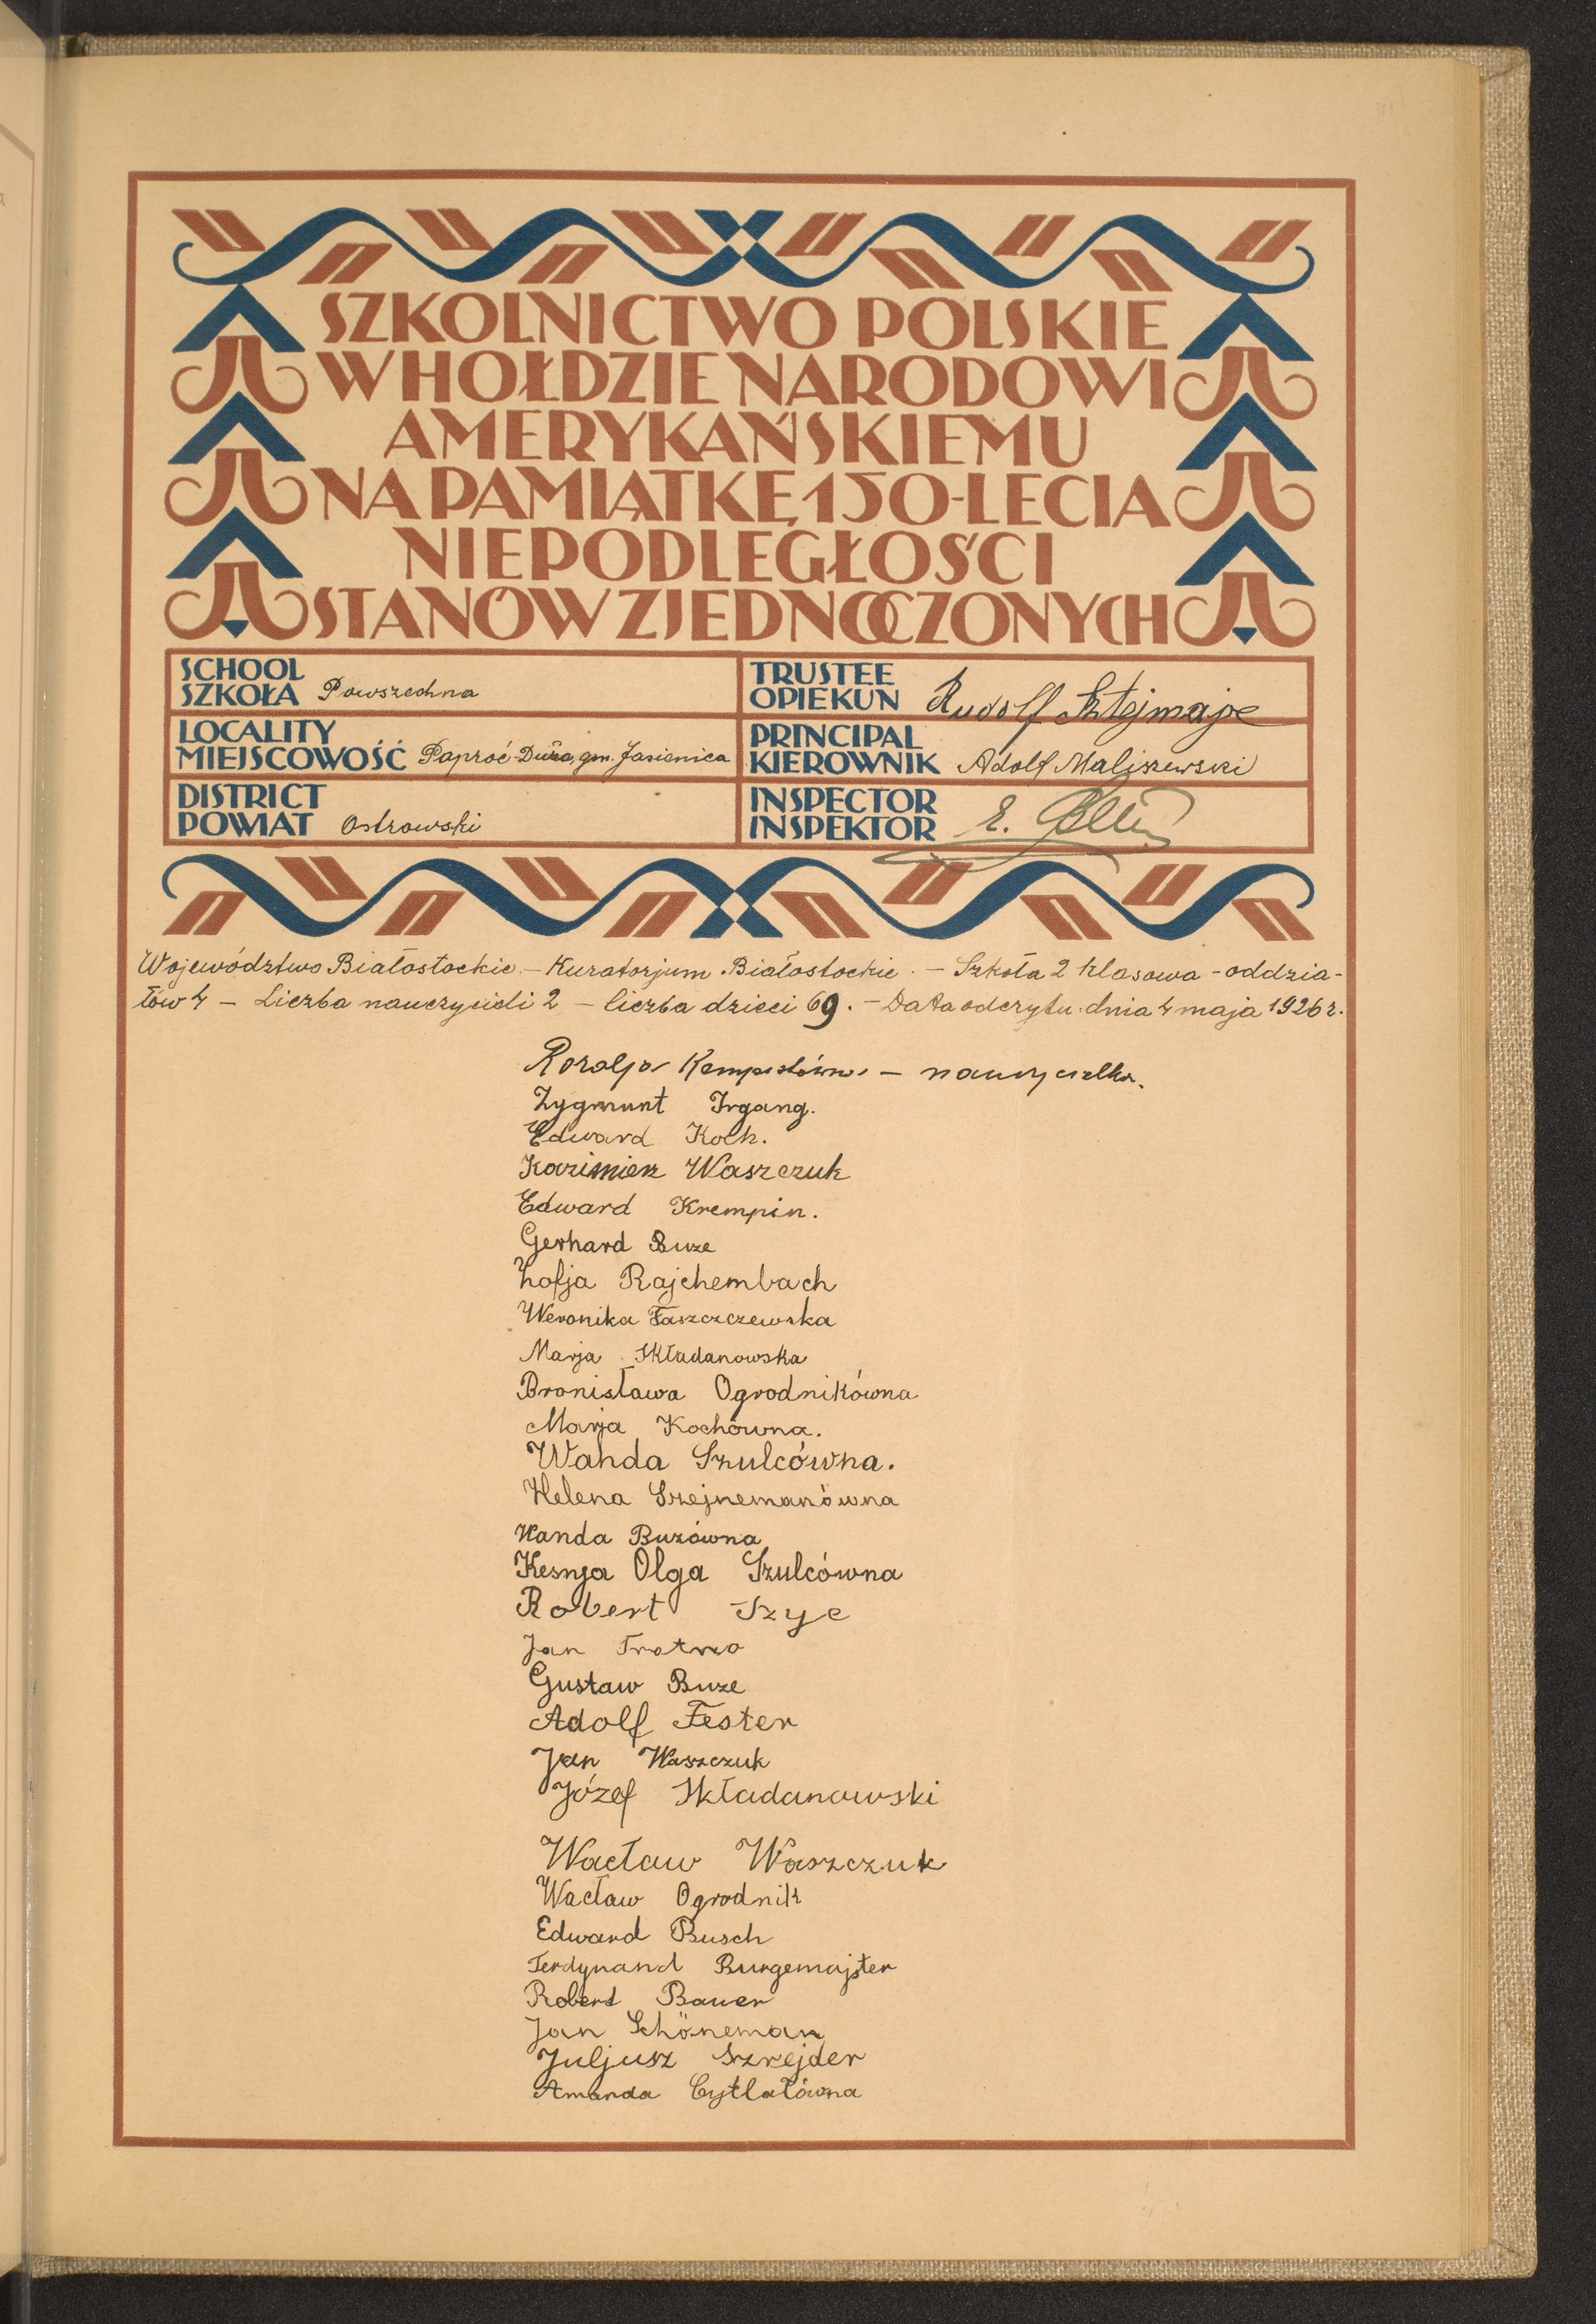 SZKOLNICTWO POLSKIE
W HOŁDZIE NARODOWI
AMERYKAŃSKIEMU
NA PAMIĄTKĘ 150-LECIA
NIEPODLEGŁOŚCI
STANÓW ZJEDNOCZONYCH
SCHOOL
SZKOŁA Powszechna
LOCALITY
MIEJSCOWOŚĆ Paproć-Duża, gm. Jasienica
DISTRICT
POWIAT Ostrowski
TRUSTEE
OPIEKUN Rudolf Sztejmajer
PRINCIPAL
KIEROWNIK Adolf Maliszewski
INSPECTOR
INSPEKTOR E.
Województwo Białostockie. – Kuratorjum Białostockie. – Szkoła 2 klasowa - oddzia-
łów 4 – Liczba nauczycieli 2 – liczba dzieci 69. – Data odczytu: dnia 4 maja 1926 r.
Rozalja – nauczycielka.
Zygmunt Irgang.
Edward Koch.
Kazimierz Waszczuk
Edward Krempin.
Gerhard Buze
Zofja Rajchembach
Weronika Faszczewska
Marja Składanowska
Bronisława Ogrodnikówna
Marja Kochówna.
Wanda Szulcówna.
Helena Szejnemanówna
Wanda Buzówna
Kesnja Olga Szulcówna
Robert Szyc
Jan
Gustaw Buze
Adolf Fester
Jan Waszczuk
Józef Składanowski
Wacław Waszczuk
Wacław Ogrodnik
Edward Busch
Ferdynand Burgemajster
Robert Bauer
Jan Schöneman
Juljusz Szrejder
Amanda Cytlałówna